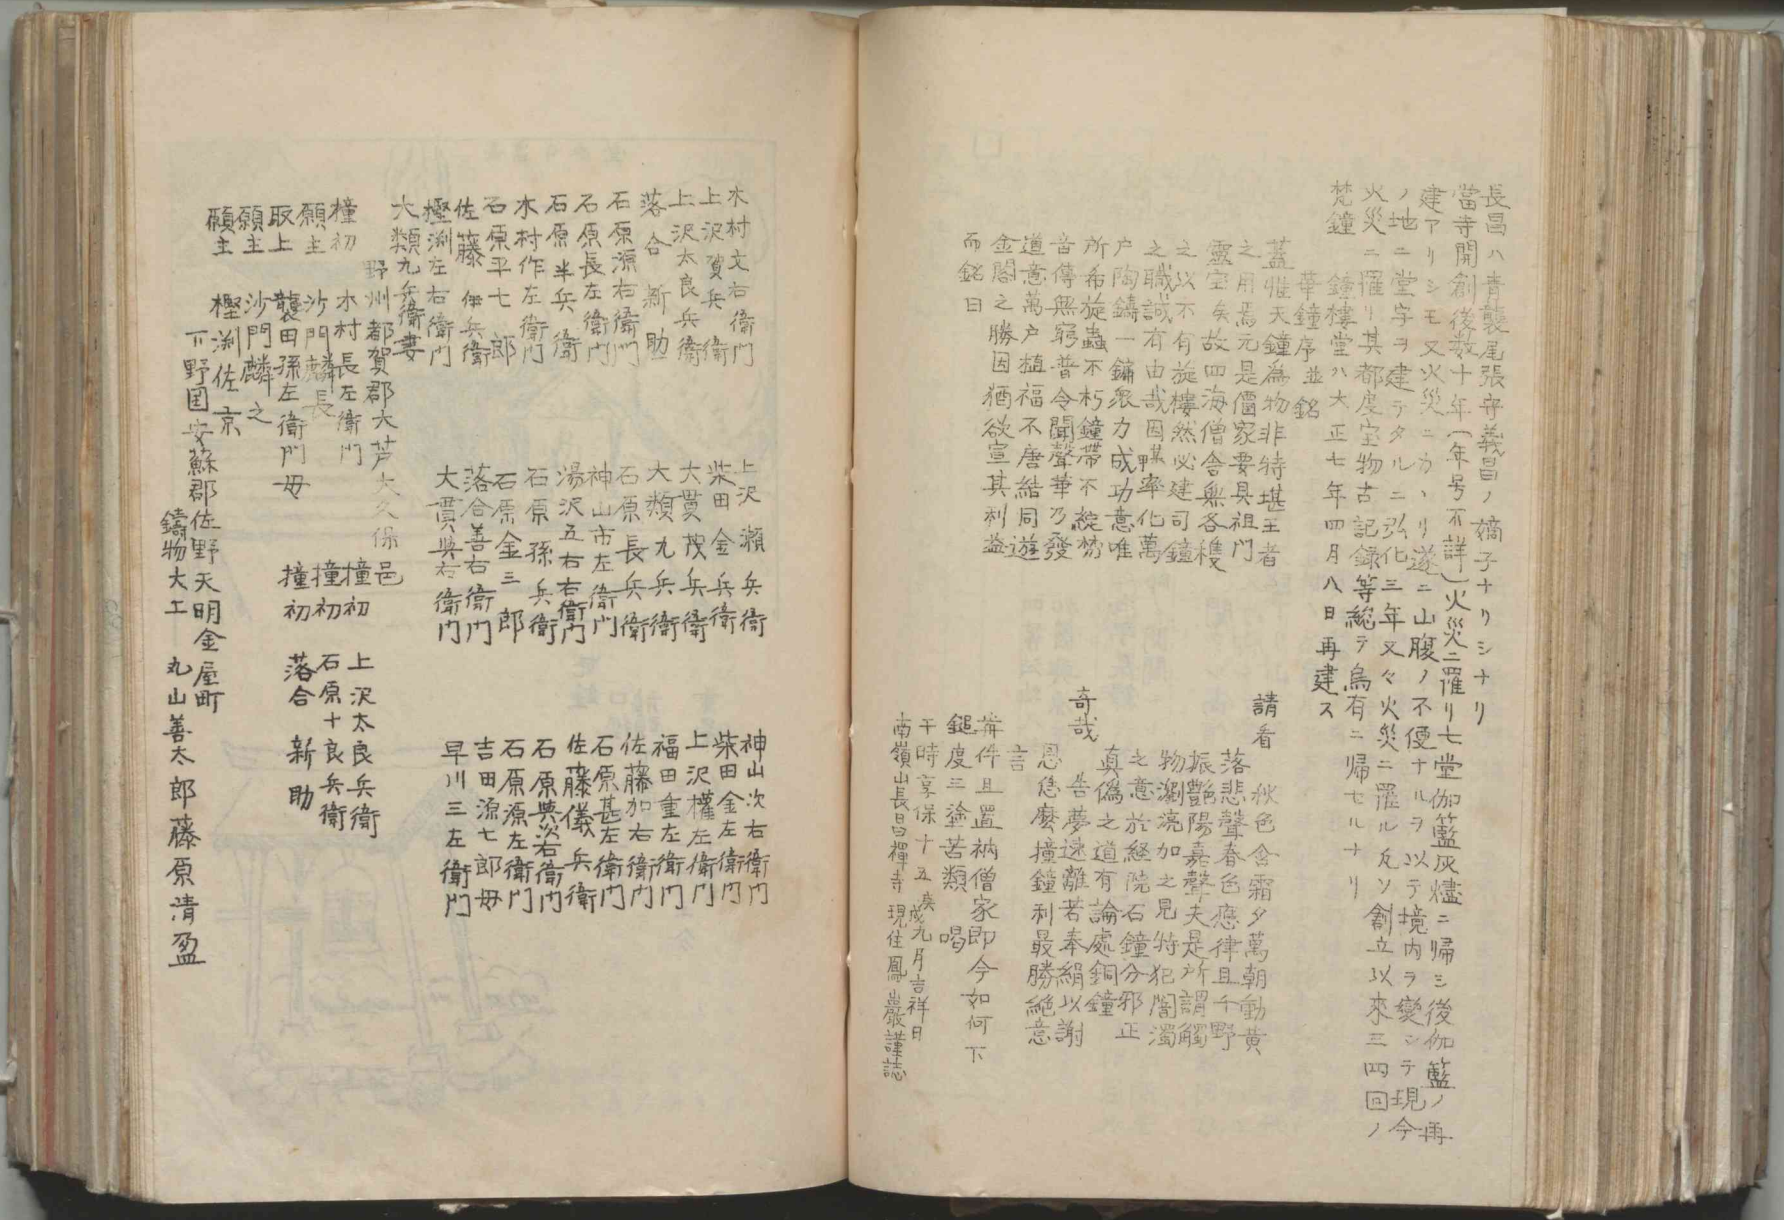 長昌ハ青襲尾張守義昌ノ嫡子ナリシナリ
當寺開創後数十年(年号不詳)火災ニ罹リ七堂伽籃灰燼ニ帰シ後伽籃ノ再
建アリシモ又火災ニカヽリ遂ニ山腹ノ不便ナルヲ以テ境内ヲ變シテ現今
ノ地ニ堂宇ヲ建テタルニ弘化三年又々火災ニ罹ル凡ソ創立以來三四回ノ
火災ニ罹リ其都度宝物古記録等総テ烏有ニ帰セルナリ
梵鐘 鐘樓堂ハ大正七年四月八日再建ス
華鐘序並銘
蓋惟天鐘為物非特堪王者
之用焉元是僊家要具祖門
靈宝矣故四海僧舎無各穫
之以不有旋樓然必建司鐘
之職誠有由哉因謀率化萬
户陶鋳一鏞衆力成功意唯
所希旋蟲不朽鐘帯不綻
音傳無窮普令聞聲華乃發
道意萬户植福不唐結同遊
金閣之勝因猶欲宣其利益
而銘曰
請看 秋色含霜夕萬朝動黄
落悲聲春色應律且千野
振艶陽嘉聲夫是所謂觸
物瀏湸加之見特犯闇濁
之意於経院石鐘分邪正
真偽之道有論處銅鐘
奇哉 告夢速離若奉絹以謝
恩恁麼撞鐘利最勝絶意
言
并件且置衲僧家即今如何下
鎚度三塗苦類 喝
干時享保十五庚戌九月吉祥日
南嶺山長昌禪寺現住鳳山巖謹誌
木村文右衛門
上沢賀兵衛
上沢太良兵衛
落合新助
石原源右衛門
石原長左衛門
石原半兵衛
木村作左衛門
石原平七郎
佐藤伊兵衛
樫渕左右衛門
大類九兵衛妻
上沢瀬兵衛
柴田金兵衛
大貫茂兵衛
大類九兵衛
石原長兵衛
神山市左衛門
湯沢五右衛門
石原孫兵衛
石原金三郎
落合善右衛門
大貫與右衛門
神山次右衛門
柴田金左衛門
上沢權左衛門
福田重左衛門
佐藤加右衛門
石原甚左衛門
佐藤儀兵衛
石原與治右衛門
石原源左衛門
吉田源七郎母
早川三左衛門
野州都賀郡大芦大久保邑
撞初 木村長左衛門 撞初 上沢太良兵衛
願主 沙門麟長 撞初 石原十良兵衛
取上 襲田孫左衛門母 撞初 落合新助
願主 沙門麟之
願主 樫渕佐京
下野国安蘇郡佐野天明金屋町
鑄物大工 丸山善太郎藤原清盈